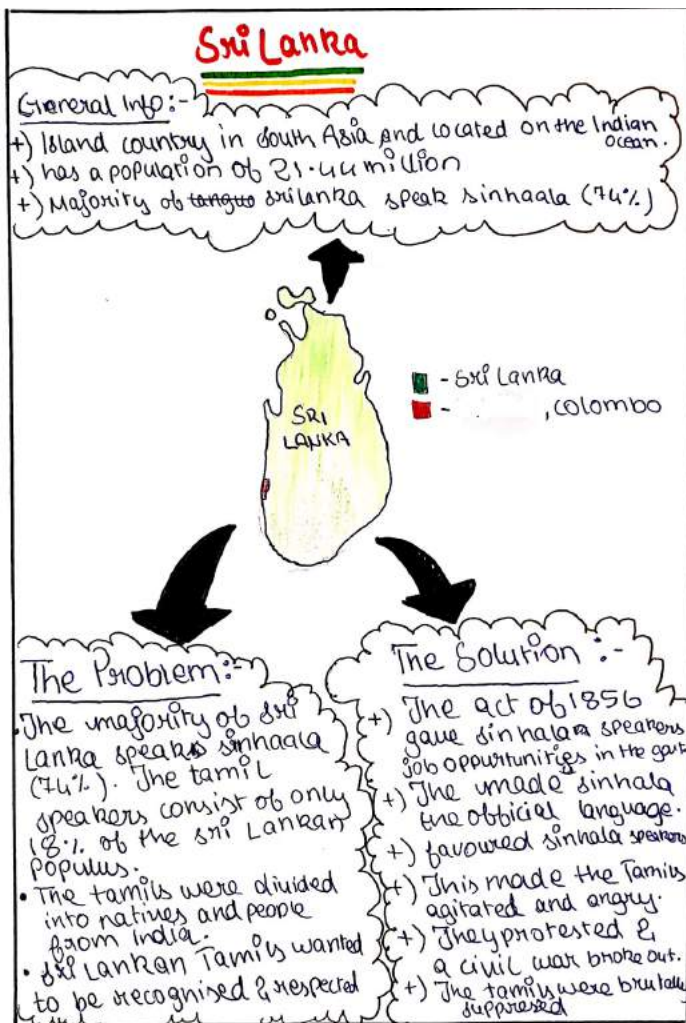 Sri Lanka
General Info:-
+) Island country in South Asia and located on the Indian
ocean.
+) has a population of 21.44 million
+) Majority of srilanka speak sinhaala (74%)
SRI
LANKA
- Sri Lanka
- , COLOMBO
The Problem:-
• The majority of sri
Lanka speaks sinhaala
(74%). The tamil
speakers consist of only
18% of the sri Lankan
populus.
• The tamils were divided
into natives and people
from India.
• Sri Lankan Tamils wanted
to be recognised & respected
The Solution :-
+) The act of 1856
gave sinhala speakers
job oppurtunities in the govt
+) The umade sinhala
the official language.
+) favoured sinhala speakers
+) This made the Tamils
agitated and angry.
+) They protested &
a civil war broke out.
+) The tamils were brutally
suppresed